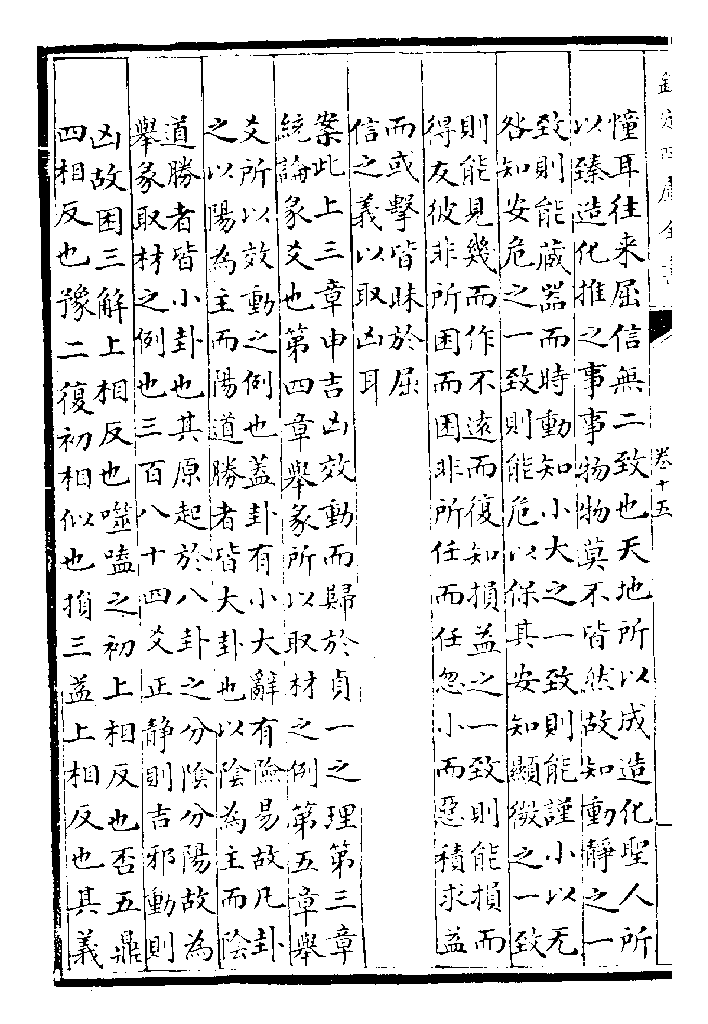 欽定四庫全書
卷十五
憧耳往来屈信無二致也天地所以成造化聖人所
以臻造化推之事事物物莫不皆然故知動靜之一
致則能蔵器而時動知小大之一致則能謹小以无
咎知安危之一致則能危以保其安知顯微之一致
則能見幾而作不遠而復知損益之一致則能損而
得友彼非所困而困非所任而任忽小而惡積求益
而或擊皆昧於屈
信之義以取凶耳
案此上三章申吉凶效動而歸於貞一之理第三章
統論彖爻也第四章舉彖所以取材之例第五章舉
爻所以效動之例也蓋卦有小大辭有險易故凡卦
之以陽為主而陽道勝者皆大卦也以陰為主而陰
道勝者皆小卦也其原起於八卦之分陰分陽故為
舉彖取材之例也三百八十四爻正靜則吉邪動則
凶故困三解上相反也噬嗑之初上相反也否五鼎
四相反也豫二復初相似也損三益上相反也其義